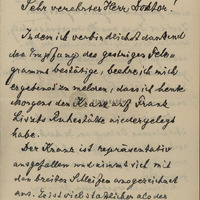 Sehr verehrter Herr Doktor!
Indem ich verbindlichst dankend
des Empfang des gestrigen Tele-
gramms bestätige, beehre ich mich
ergebenst zu melden, dass ich heute
morgens den Kranz auf Frank
Liszts Ruhestätte niedergelegt
habe.
Der Kranz ist repräsentativ
ausgefallen und nimmt sich mit
den breiten Schleifen ausgezeichnet
aus. Es ist viel stattlicher als der